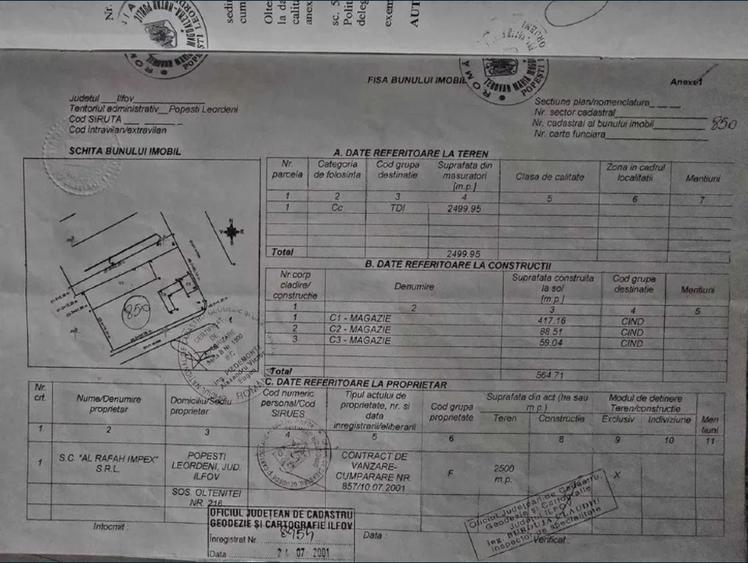 Nr.
sedi
cum
Olte
la da
calit
anex
sc. 5
Polit
deleg
exem
AUT
FISA BUNULUI IMOBIL
Anexa 1
Judetul Ilfov
Teritoriul administrativ Popesti Leordeni
Cod SIRUTA
Cod Intravilan/extravilan
Sectiune plan/nomenclatura
Nr. sector cadastral
Nr. cadastral al bunului imobil 850
Nr. carte funciara
SCHITA BUNULUI IMOBIL
850
A. DATE REFERITOARE LA TEREN
Nr. parcela Categoria de folosinta Cod grupa destinatie Suprafata din masuratori [m.p.] Clasa de calitate Zona in cadrul localitatii Mentiuni
1 2 3 4 5 6 7
1 Cc TDI 2499.95
Total 2499.95
B. DATE REFERITOARE LA CONSTRUCTII
Nr corp cladire/ constructie Denumire Suprafata construita la sol [m.p.] Cod grupa destinatie Mentiuni
1 2 3 4 5
1 C1 - MAGAZIE 417.16 CIND
2 C2 - MAGAZIE 88.51 CIND
3 C3 - MAGAZIE 59.04 CIND
Total 564.71
C. DATE REFERITOARE LA PROPRIETAR
Nr. crt. Nume/Denumire proprietar Domiciliu/Sediu proprietar Cod numeric personal/Cod SIRUES Tipul actului de proprietate, nr. si data inregistrarii/eliberarii Cod grupa proprietate Suprafata din act (ha sau m.p.) Teren Constructie Modul de detinere Teren/constructie Exclusiv Indiviziune Men tiuni
1 2 3 4 5 6 8 9 10 11
1 S.C. "AL RAFAH IMPEX" S.R.L. POPESTI LEORDENI, JUD. ILFOV CONTRACT DE VANZARE- CUMPARARE NR 857/10.07.2001 F 2500 m.p. X
SOS. OLTENITEI NR. 216
Intocmit
OFICIUL JUDEȚEAN DE CADASTRU
GEODEZIE ȘI CARTOGRAFIE ILFOV
Înregistrat Nr. 8954
Data 24 07 2001
Data :
Oficiul Judeţean de Cadastru,
Geodezie şi Cartografie
Judeţul ILFOV
ing. BURDUJA CLAUDIU
Inspector de specialitate
Verificat